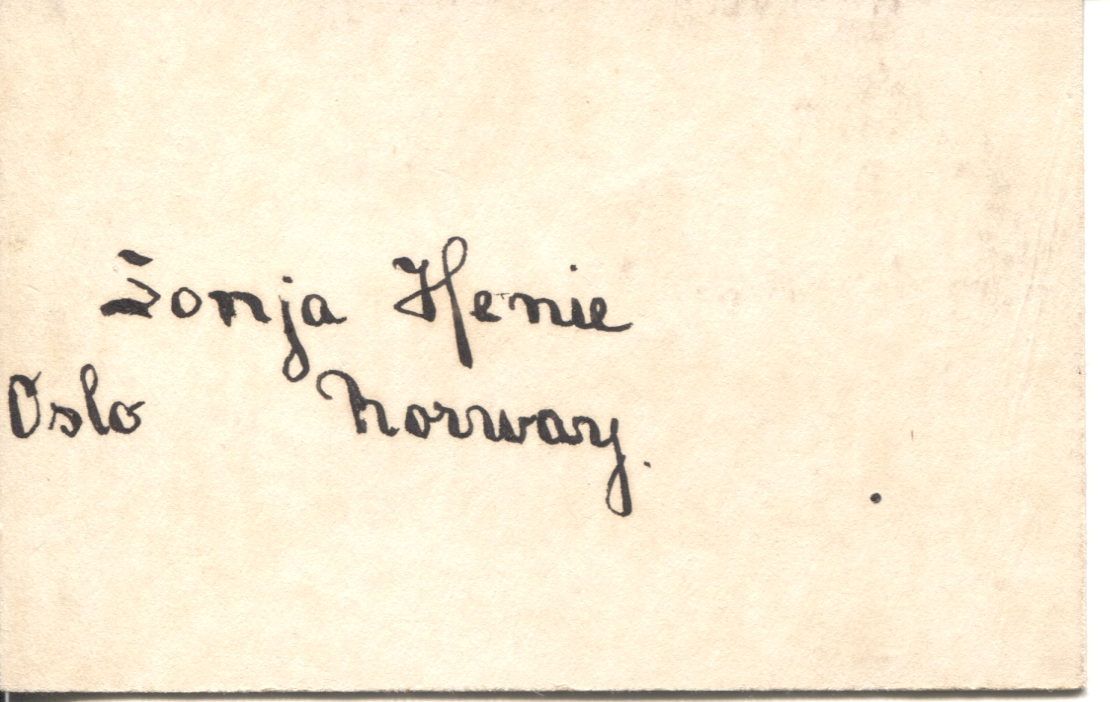 Sonja Henie
Oslo Norway.